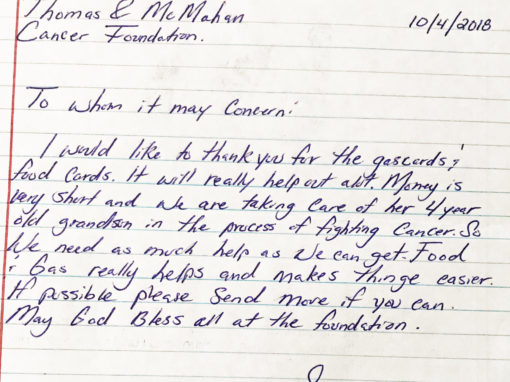 Thomas & McMahan
10/4/2018
Cancer Foundation.
To whom it may Concern:
I would like to thank you for the gascards, &
food Cards. It will really help out alot. Money is
very short and we are taking care of her 4 year
old grandson in the process of fighting Cancer. So
We need as much help as we can get. Food
& Gas really helps and makes thinge easier.
If possible please Send more if you can.
May God Bless all at the foundation.